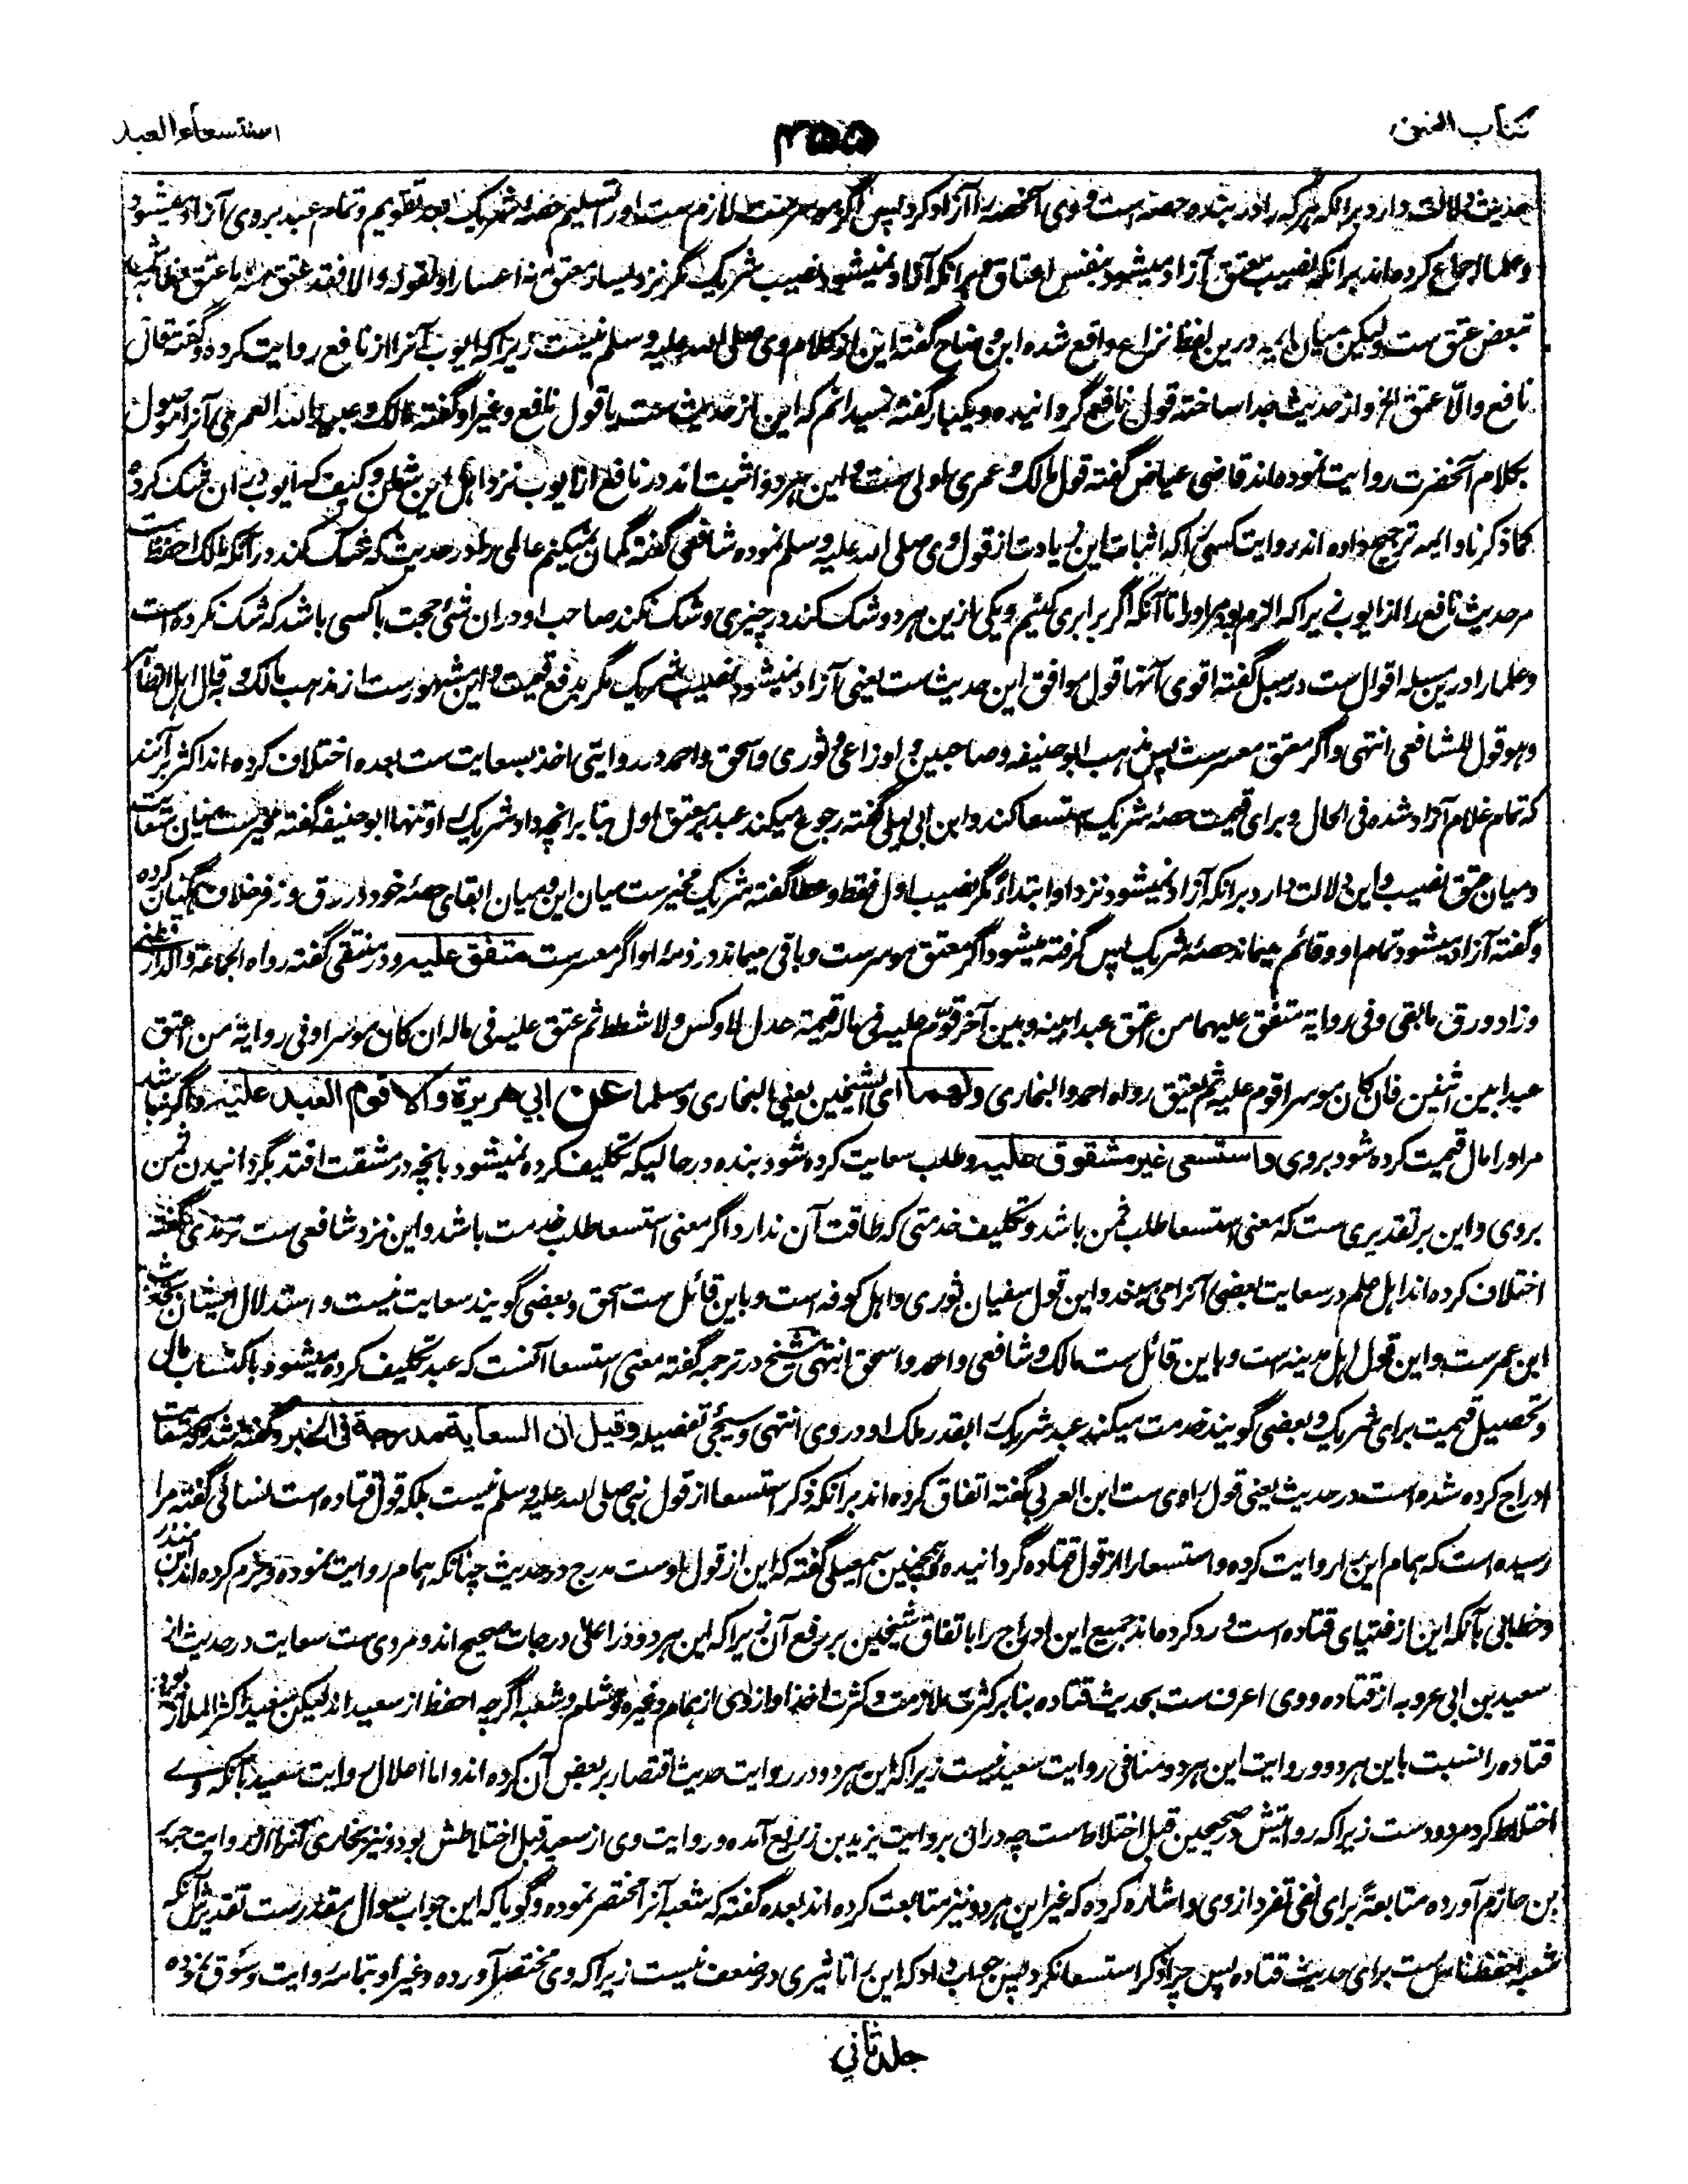 کتاب العتق
۴۵۵
استسعاء العبد
حدیث دلالت دارد برانکه هرکه را در بنده حصه است و وی آنحصه را آزاد کرد پس اگر موسرست لازم ست اورا تسلیم حصه شریک بعد تقویم و تمام عبد بروی آزاد میشود
و علما اجماع کرده اند برانکه نصیب معتق آزاد میشود بنفس اعتاق و برانکه آزاد نمیشود نصیب شریک مگر نزد یسار معتق نه اعسار او لقوله والا فقد عتق منه ما عتق
تبعض عتق ست ولیکن میان ایمه درین لفظ نزاع واقع شده ابن وضاح گفته این از کلام وی صلی الله علیه وسلم نیست زیرا که ایوب آنرا از نافع روایت کرده و گفته قال
نافع والا عتق الخ و از حدیث جدا ساخته قول نافع گردانیده و یکبار گفته نمیدانم که این از حدیث ست یا قول نافع و غیر او گفته مالک و عبید الله العمری آنرا موصول
بکلام آنحضرت روایت نموده اند قاضی عیاض گفته قول مالک و عمری اولی ست و این هر دو اثبت اند در نافع از ایوب نزد اهل این شان و کیف که ایوب در ان شک کرده
کما ذکرنا و ایمه ترجیح داده اند روایت کسی را که اثبات این زیادت از قول وی صلی الله علیه وسلم نموده شافعی گفته گمان نمیکنم عالمی را در حدیث که شک کند درآنکه مالک احفظ ست
مر حدیث نافع را از ایوب زیرا که الزم بود مر اورا تا آنکه اگر برابری کنیم و یکی ازین هر دو شک کند در چیزی و شک نکند صاحب او در ان شئی حجت با کسی باشد که شک نکرده است
و علما را درین مسئله اقوال ست در سبل گفته اقوی آنها قول موافق این حدیث ست یعنی آزاد نمیشود نصیب شریک مگر بدفع قیمت و این مشهورست از مذهب مالک و به قال اهل الظاهر
وهو قول للشافعی انتهی و اگر معتق معسرست پس مذهب ابو حنیفه و صاحبین و اوزاعی و ثوری و اسحق و احمد در روایتی اخذ بسعایت ست بعده اختلاف کرده اند اکثر برآنند
که تمام غلام آزاد شده فی الحال و برای قیمت حصهٔ شریک استسعا کند و ابن ابی لیلی گفته رجوع میکند عبد بر معتق اول بنا برانچه داد شریک را و تنها ابو حنیفه گفته مخیرست میان سعایت
و میان عتق نصیب و این دلالت دارد برانکه آزاد نمیشود نزد او ابتداءً مگر نصیب اول فقط و عطا گفته شریک مخیرست میان این و میان ابقای حصهٔ خود در رق و زفر خلاف همگنان کرده
و گفته آزاد میشود تمام او و قائم میماند حصهٔ شریک پس گرفته میشود اگر معتق موسرست و باقی میماند در ذمهٔ او اگر معسرست متفق علیه و در منتقی گفته رواه الجماعة و الدارقطنی
و زاد ورق ما بقی و فی روایة متفق علیهما من اعتق عبدا بینه و بین آخر قوّم علیه فی ماله قیمة عدل لا وکس ولا شطط ثم عتق علیه فی ماله ان کان موسرا و فی روایة من اعتق
عبدا بین اثنین فان کان موسرا قوم علیه ثم یعتق رواه احمد و البخاری ولهما ای الشیخین یعنی البخاری و مسلما عن ابي هريرة والا قوم العبد عليه و اگر نباشد
مر اورا مال قیمت کرده شود بروی واستسعي غير مشقوق عليه و طلب سعایت کرده شود بنده در حالیکه تکلیف کرده نمیشود بانچه در مشقت افتد بگردانیدن ثمن
بروی و این بر تقدیری ست که معنی استسعا طلب ثمن باشد و تکلیف خدمتی که طاقت آن ندارد اگر معنی استسعا طلب خدمت باشد و این نزد شافعی ست ترمذی گفته
اختلاف کرده اند اهل علم در سعایت بعضی آنرا می بینند و این قول سفیان ثوری و اهل کوفه است و باین قائل ست اسحق و بعضی گویند سعایت نیست و استدلال ایشان بحدیث
ابن عمرست و این قول اهل مدینه ست و باین قائل ست مالک و شافعی و احمد و اسحق انتهی شیخ در ترجمه گفته معنی استسعا آنست که عبد تکلیف کرده میشود باکتساب مال
و تحصیل قیمت برای شریک و بعضی گویند خدمت میکند عبد شریک را بقدر ملک او در وی انتهی و سیجئی تفصیله وقيل ان السعاية مدرجة في الخبر و گفته شد که سعایت
ادراج کرده شده است در حدیث یعنی قول راوی ست ابن العربی گفته اتفاق کرده اند برانکه ذکر استسعا از قول نبی صلی الله علیه وسلم نیست بلکه قول قتاده است نسائی گفته مرا
رسیده است که همام این را روایت کرده و استسعا را از قول قتاده گردانیده و همچنین اسمعیلی گفته که این از قول اوست مدرج در حدیث چنانکه همام روایت نموده و جزم کرده اند ابن منذر
و خطابی بآنکه این از فتیای قتاده است و رد کرده اند جمیع این ادراج را باتفاق شیخین بر رفع آن زیرا که این هر دو در اعلی درجات صحیح اند و مروی ست سعایت در حدیث از
سعید بن ابی عروبه از قتاده و وی اعرف ست بحدیث قتاده بنا بر کثرت ملازمت و کثرت اخذ او از وی از همام و غیره و هشام و شعبه اگرچه احفظ از سعید اند لیکن سعید اکثر الملازمة بود
قتاده را نسبت باین هر دو و روایت این هر دو منافی روایت سعید نیست زیرا که این هر دو در روایت حدیث اقتصار بر بعض آن کرده اند و اما اعلال روایت سعید بآنکه وے
اختلاط کرد مردودست زیرا که روایتش در صحیحین قبل اختلاط ست چه دران بروایت یزید بن زریع آمده و روایت وی از سعید قبل اختلاطش بود و نیز بخاری آنرا از روایت جریر
بن حازم آورده متابعةً برای نفی تفرد از وی و اشاره کرده که غیر این هر دو نیز متابعت کرده اند بعده گفته که شعبه آنرا مختصر نموده و گویا که این جواب سوال مقدرست تقدیرش آنکه
شعبه احفظ ناس ست برای حدیث قتاده پس چرا ذکر استسعا نکرد پس جواب داد که این را تاثیری در ضعف نیست زیرا که وی مختصر آورده و غیر او بتمامه روایت و سوق نموده
جلد ثاني